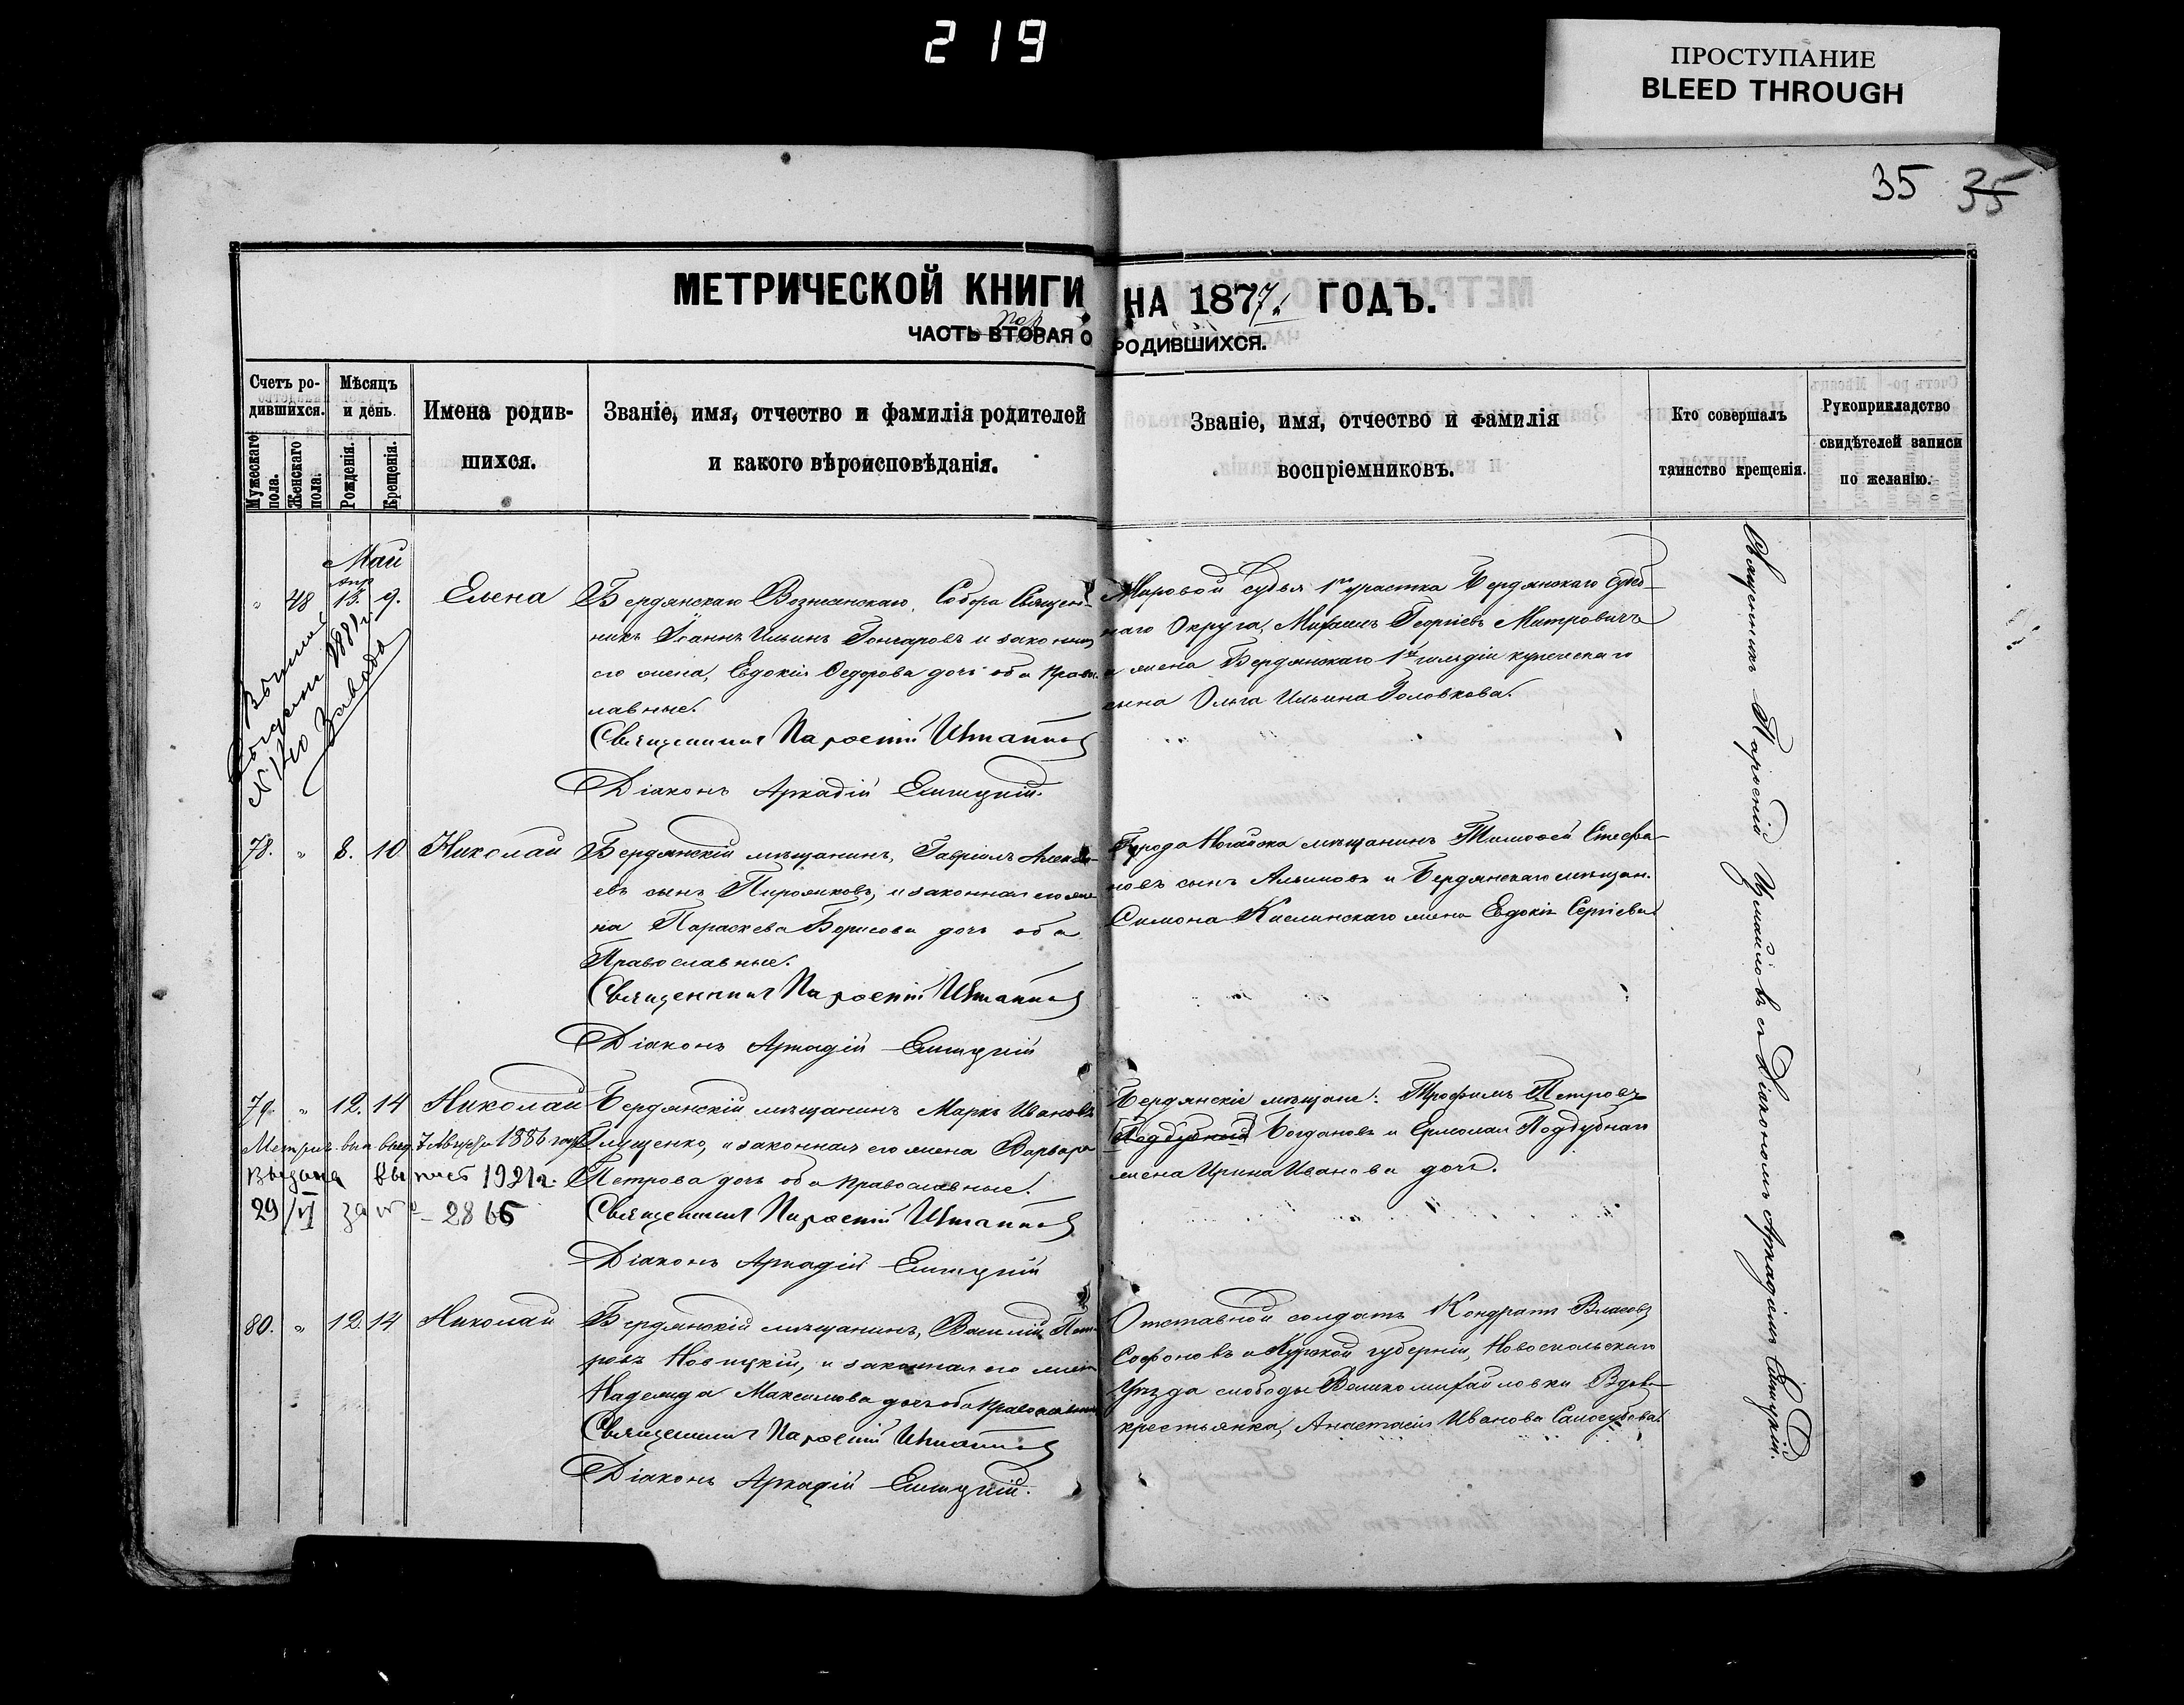 219
ПРОСТУПАНИЕ
BLEED THROUGH
35 35
МЕТРИЧЕСКОЙ КНИГИ НА 1877. ГОДЪ.
ЧАСТЬ ВТОРАЯ О РОДИВШИХСЯ.
Счетъ ро-
дившихся.
Мужескаго пола.
Женскаго пола.
Мѣсяцъ
и день.
Рожденія.
Крещенія.
Имена родив-
шихся.
Званіе, имя, отчество и фамилія родителей
и какого вѣроисповѣданія.
Званіе, имя, отчество и фамилія
воспріемниковъ.
Кто совершалъ
таинство крещенія.
Рукоприкладство
свидѣтелей записи
по желанію.
Май
48 Апр 13. 9. Елена
Бердянскаго Вознесенскаго Собора Священ-
никъ Іоаннъ Ильинъ Гончаровъ и законная
его жена, Евдокія Ѳедорова дочь оба право-
лавные.
Священникъ
Діаконъ Аркадій
Мировой судья 1го участка Бердянскаго Суде-
наго Округа, Михаилъ Георгіевъ Митровичъ
и жена Бердянскаго 1й гильдіи купеческаго
сына Ольга Ильина Головкова.
1881 г.
№ 140
78. " 8. 10 Николай
Бердянскій мѣщанинъ, Гавріилъ
евъ сынъ Пирожковъ, и законная его же
на Параскева Борисова дочь оба
Православные.
Священникъ
Діаконъ Аркадій
Города Ногайска мѣщанинъ Тимоѳей Стефа-
новъ сынъ Алимовъ и Бердянскаго мѣщан.
Симона Кислинскаго жена Евдокія Сергіева.
79. " 12. 14 Николай
Бердянскій мѣщанинъ Маркъ Ивановъ
Глущенко, и законная его жена Варвара
Петрова дочь оба православные.
Священникъ
Діаконъ Аркадій
Бердянскіе мѣщане: Трофимъ Петровъ
Поддубный Богдановъ и Ермолая Поддубнаго
жена Ирина Иванова дочь.
1886 года
Выдана 1921 г.
29/VI за № 2866
80. " 12. 14 Николай
Бердянскій мѣщанинъ, Василій Пет-
ровъ Новицкій, и законная его жена
Надежда Максимова дочь оба православные
Священникъ
Діаконъ Аркадій
Отставной солдатъ Кондратъ Власовъ
Сафоновъ и Курской губерніи, Новоскольскаго
Уѣзда слободы Великомихайловки Вдова
крестьянка, Анастасія Иванова
Священникъ Парѳеній Измайловъ съ Діакономъ Аркадіемъ